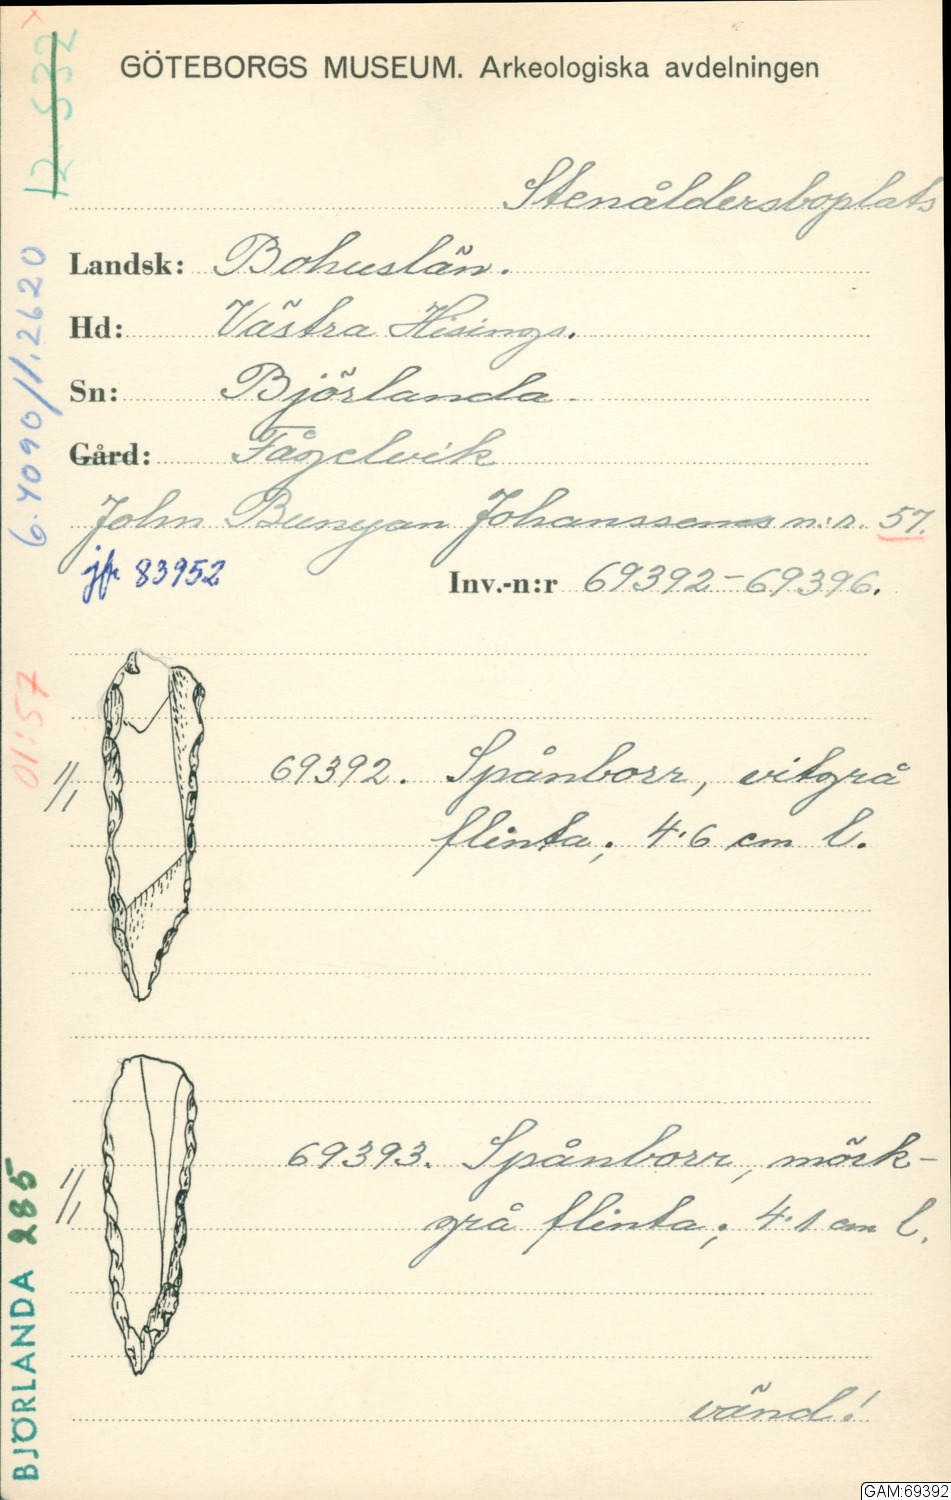 GÖTEBORGS MUSEUM. Arkeologiska avdelningen
12 532
Stenåldersboplats
Landsk: Bohuslän.
Hd: Västra Hisings.
Sn: Björlanda
Gård: Fågelvik
John Bunyan Johanssons n:r. 57.
jfr 83952
Inv.-n:r 69392-69396.
6.4090/1.2620
01:57
1/1
69392. Spånborr, vitgrå
flinta; 4.6 cm l.
1/1
69393. Spånborr, mörk-
grå flinta; 4.1 cm l.
BJÖRLANDA 285
vänd!
GAM:69392